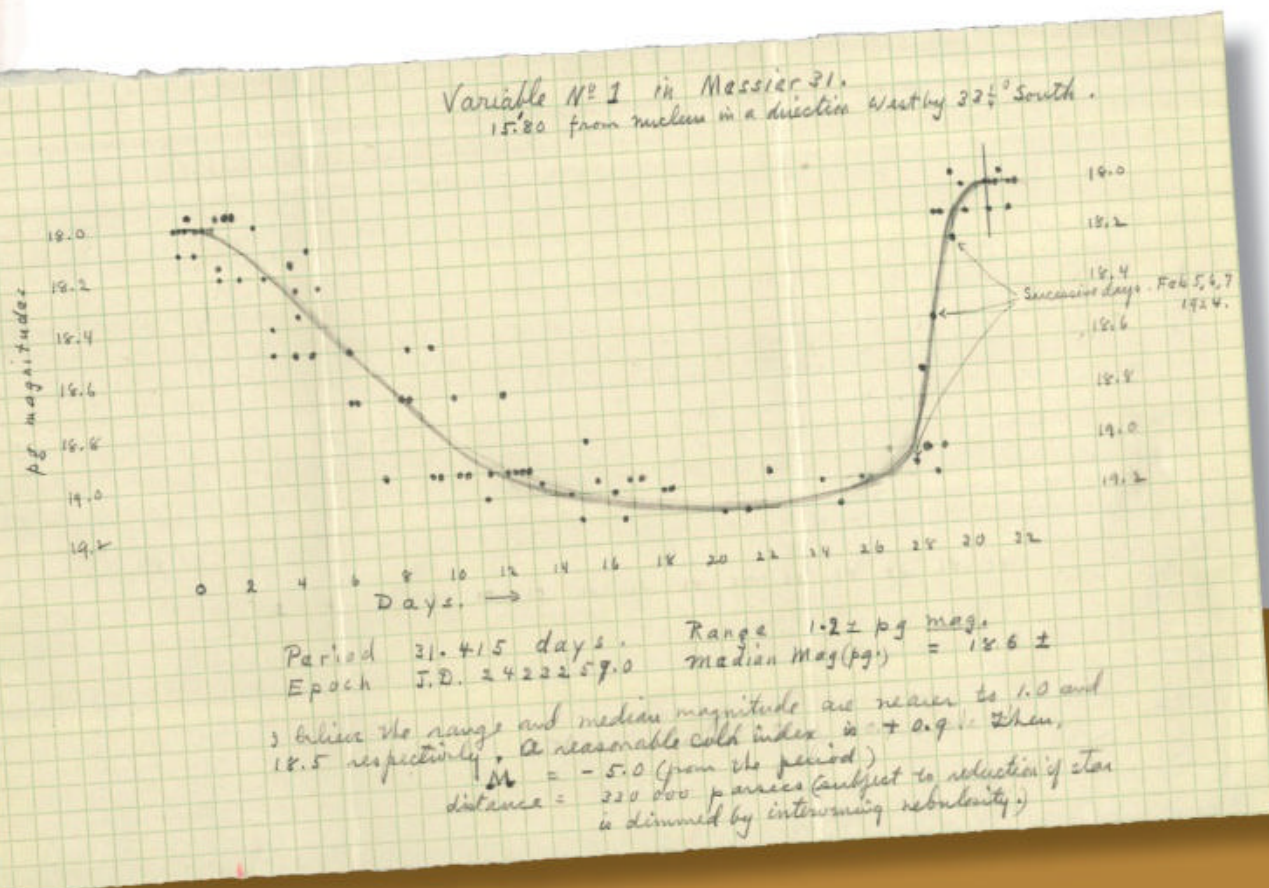 Variable Nº 1 in Messier 31.
15.'80 from nucleus in a direction West by 33½° South.
pg magnitudes
18.0
18.2
18.4
18.6
18.8
19.0
19.2
18.0
18.2
18.4
18.6
18.8
19.0
19.2
Successive days. Feb 5, 6, 7
1924.
0 2 4 6 8 10 12 14 16 18 20 22 24 26 28
Days. →
Period 31.415 days. Range 1.2± pg mag.
Epoch J.D. median Mag (pg.) = 18.6 ±
I believe the range and median magnitude are nearer to 1.0 and
18.5 respectively. A reasonable color index is + 0.9. Then,
M = - 5.0 (from the period)
distance = 000 parsecs (subject to reduction if star
is dimmed by intervening nebulosity.)